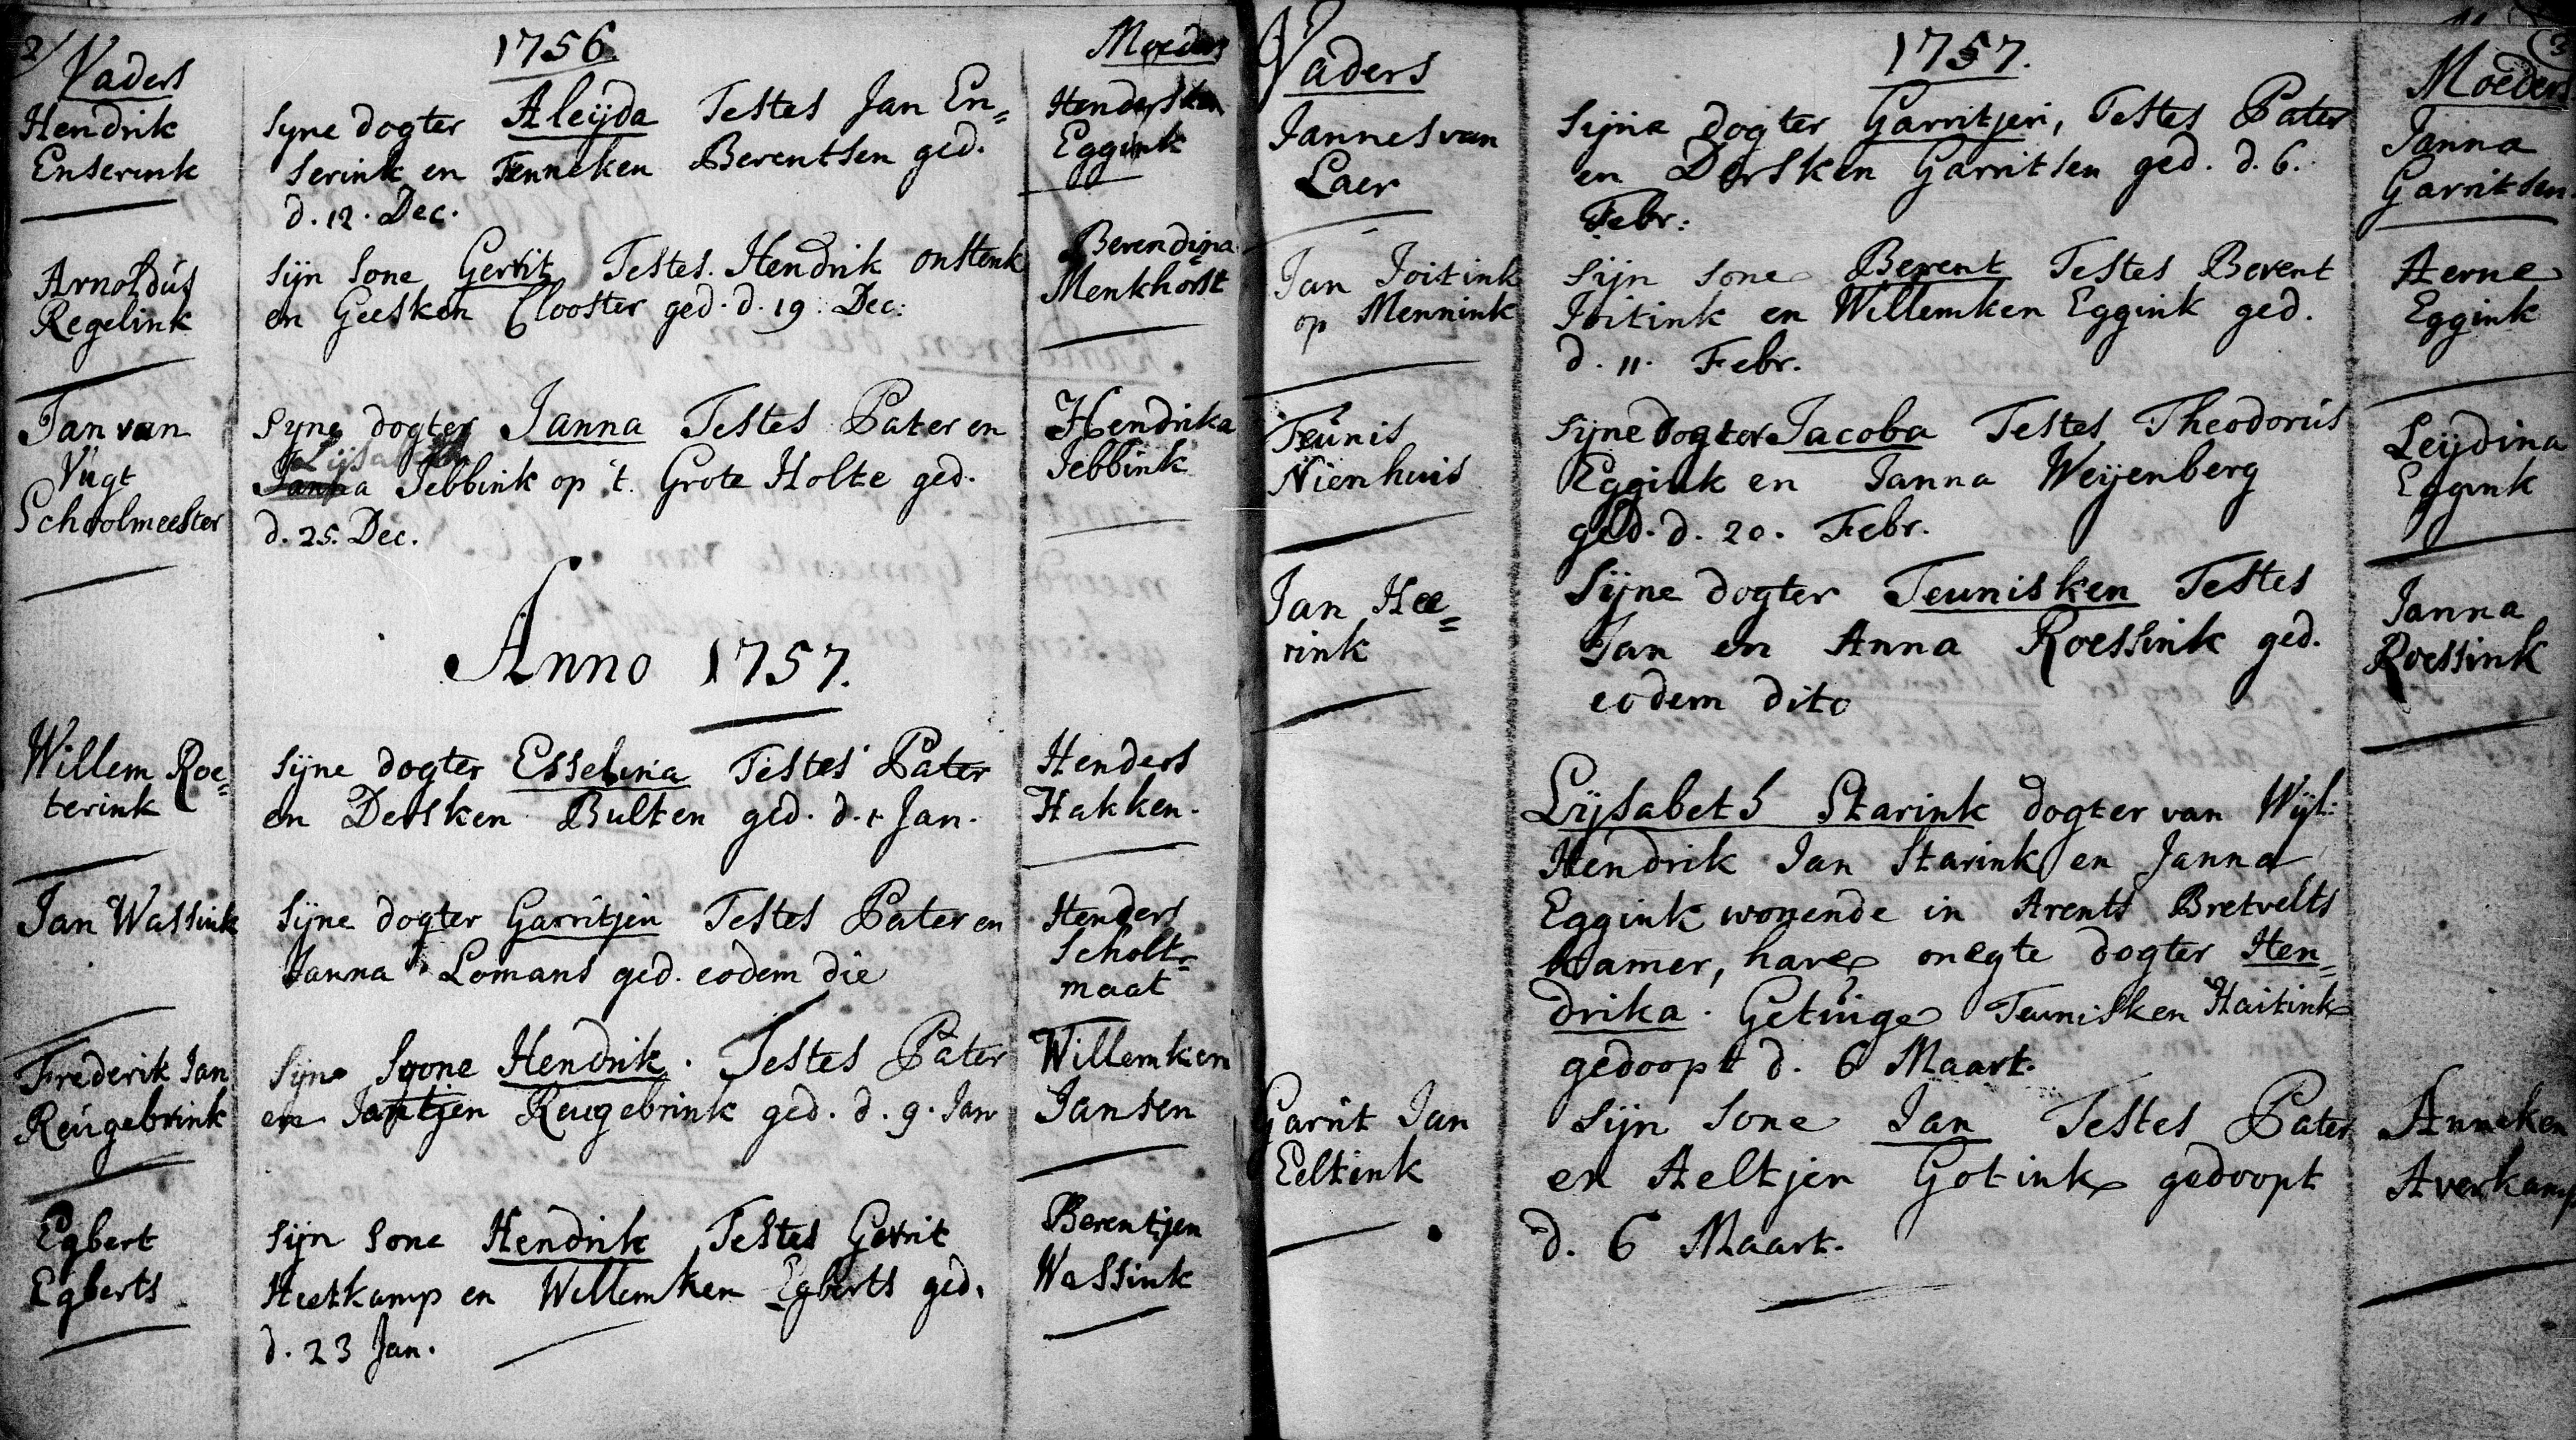 2/
Vaders
1756.
Moeders
Hendrik
Enserink
Syne dogter Aleijda Testes Jan En=
serink en Tenneken Berentsen ged.
d. 12. Dec.
Hendersken
Eggink
Arnoldus
Regelink
Sijn Sone Gerrit Testes. Hendrik Onstenk
en Geesken Clooster ged. d. 19. Dec:
Berendina
Menkhorst
Jan van
Vugt
Schoolmeester
Syne dogter Janna Testes Pater en
Lijsabeth
Janna Jebbink op 't. Grote Holte ged.
d. 25. Dec.
Hendrika
Jebbink
Anno 1757.
Willem Roe=
terink
Sijne dogter Esselina Testes Pater
en Dersken Bulten ged. d. 1 Jan.
Henders
Hakken.
Jan Wassink
Sijne dogter Garritjen Testes Pater en
Janna Lomans ged. eodem die
Henders
Scholt=
maat
Frederik Jan
Reugebrink
Sijne Soone Hendrik. Testes Pater
en Jantjen Reugebrink ged. d. 9. Jan
Willemken
Jansen
Egbert
Egberts
Sijn Sone Hendrik Testes Gerrit
Heetkamp en Willemken Egberts ged.
d. 23 Jan.
Berentjen
Wassink
3
Vaders
1757.
Moeders
Jannes van
Laer
Sijne dogter Garritjen, Testes Pater
en Dersken Garritsen ged. d. 6.
Febr:
Janna
Garritsen
Jan Joitink
op Mennink
Sijn Sone Berent Testes Berent
Joitink en Willemken Eggink ged.
d. 11. Febr.
Aerne
Eggink
Teunis
Nienhuis
Sijne dogter Jacoba Testes Theodorus
Eggink en Janna Weijenberg
ged. d. 20. Febr.
Leijdina
Eggink
Jan Hee=
rink
Sijne dogter Teunisken Testes
Jan en Anna Roessink ged.
eodem dito
Janna
Roessink
Lijsabeth Starink dogter van Wijl:
Hendrik Jan Starink en Janna
Eggink wonende in Arents Bretvelts
kamer, hare onegte dogter Hen=
drika. Getuige Teunisken Haitink
gedoopt d. 6 Maart.
Garrit Jan
Eeltink
Sijn Sone Jan Testes Pater
en Aeltjen Gotink gedoopt
d. 6 Maart.
Anneken
Averkamp